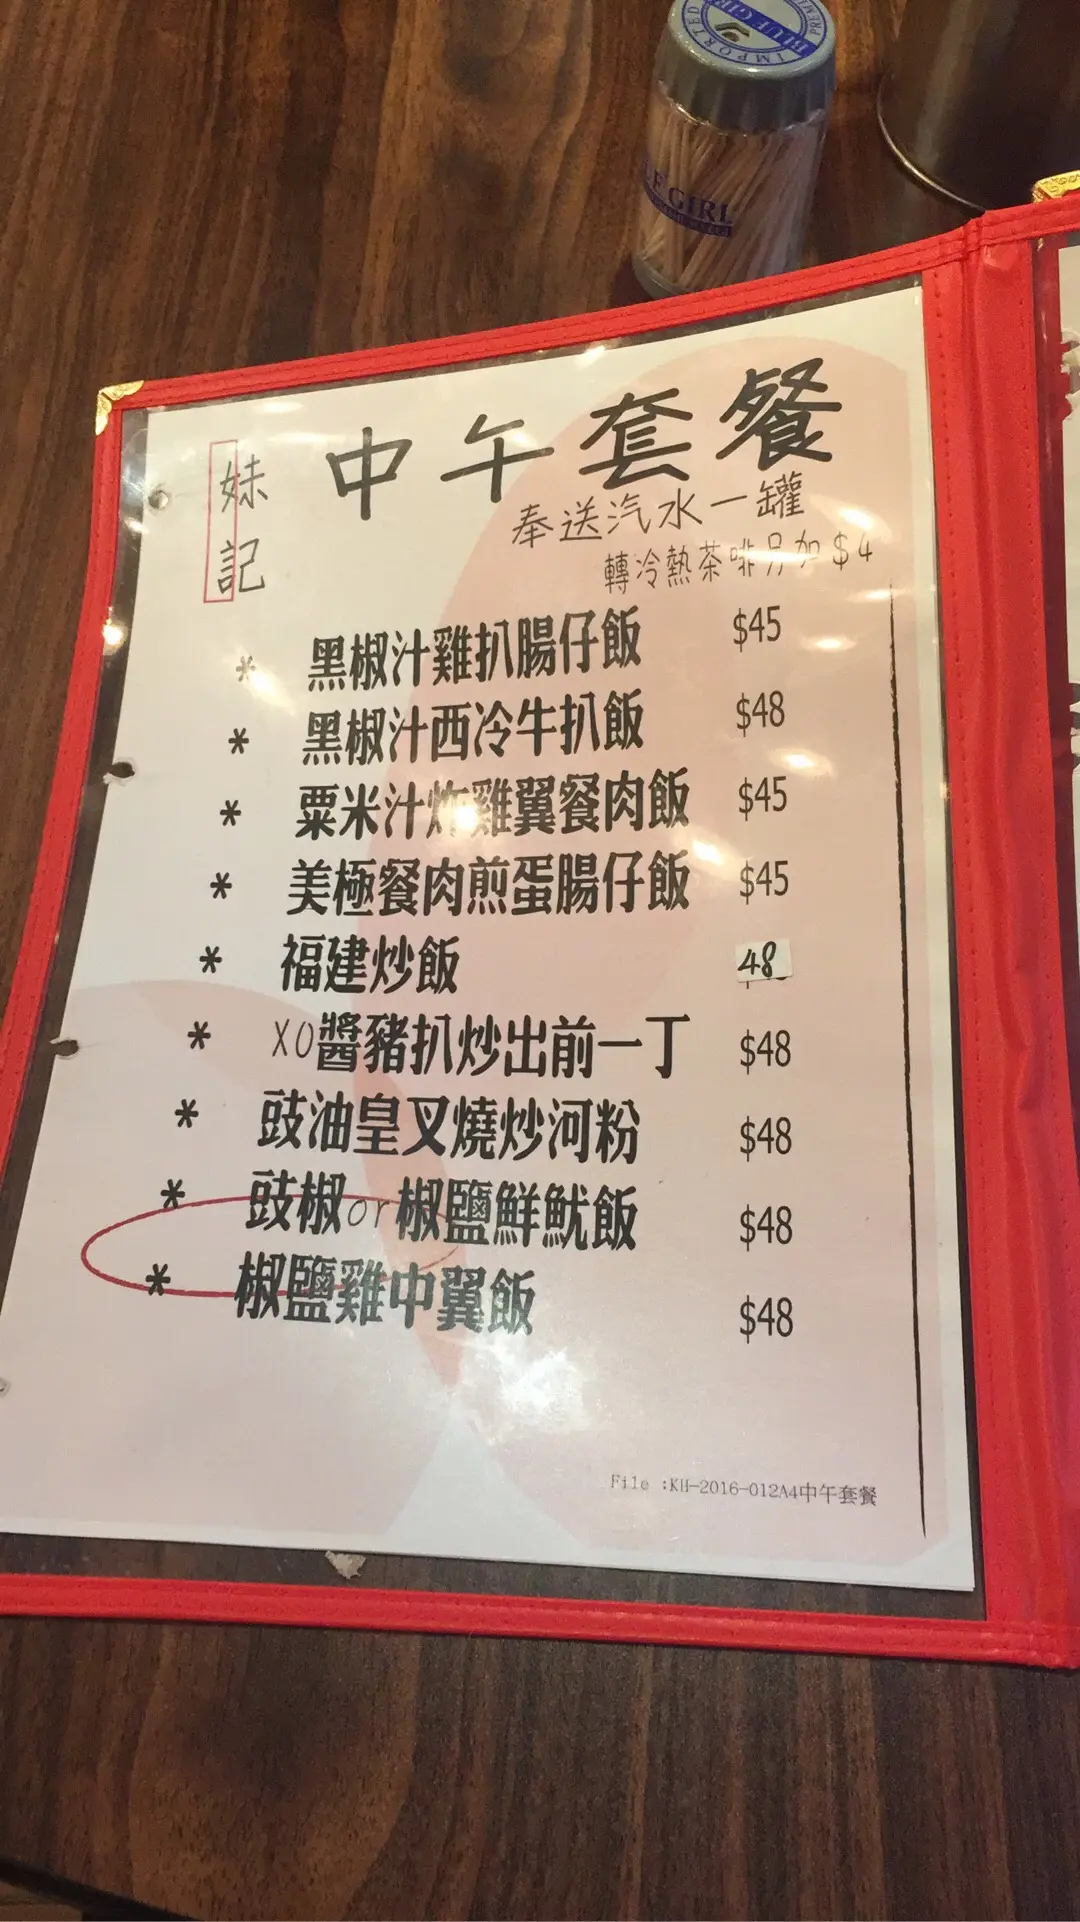 IMPORTED
BLUE GIRL
E GIRL
妹記
中午套餐
奉送汽水一罐
轉冷熱茶啡另加$4
* 黑椒汁雞扒腸仔飯 $45
* 黑椒汁西冷牛扒飯 $48
* 粟米汁炸雞翼餐肉飯 $45
* 美極餐肉煎蛋腸仔飯 $45
* 福建炒飯 48
* XO醬豬扒炒出前一丁 $48
* 豉油皇叉燒炒河粉 $48
* 豉椒or椒鹽鮮魷飯 $48
* 椒鹽雞中翼飯 $48
File :KH-2016-012A4中午套餐